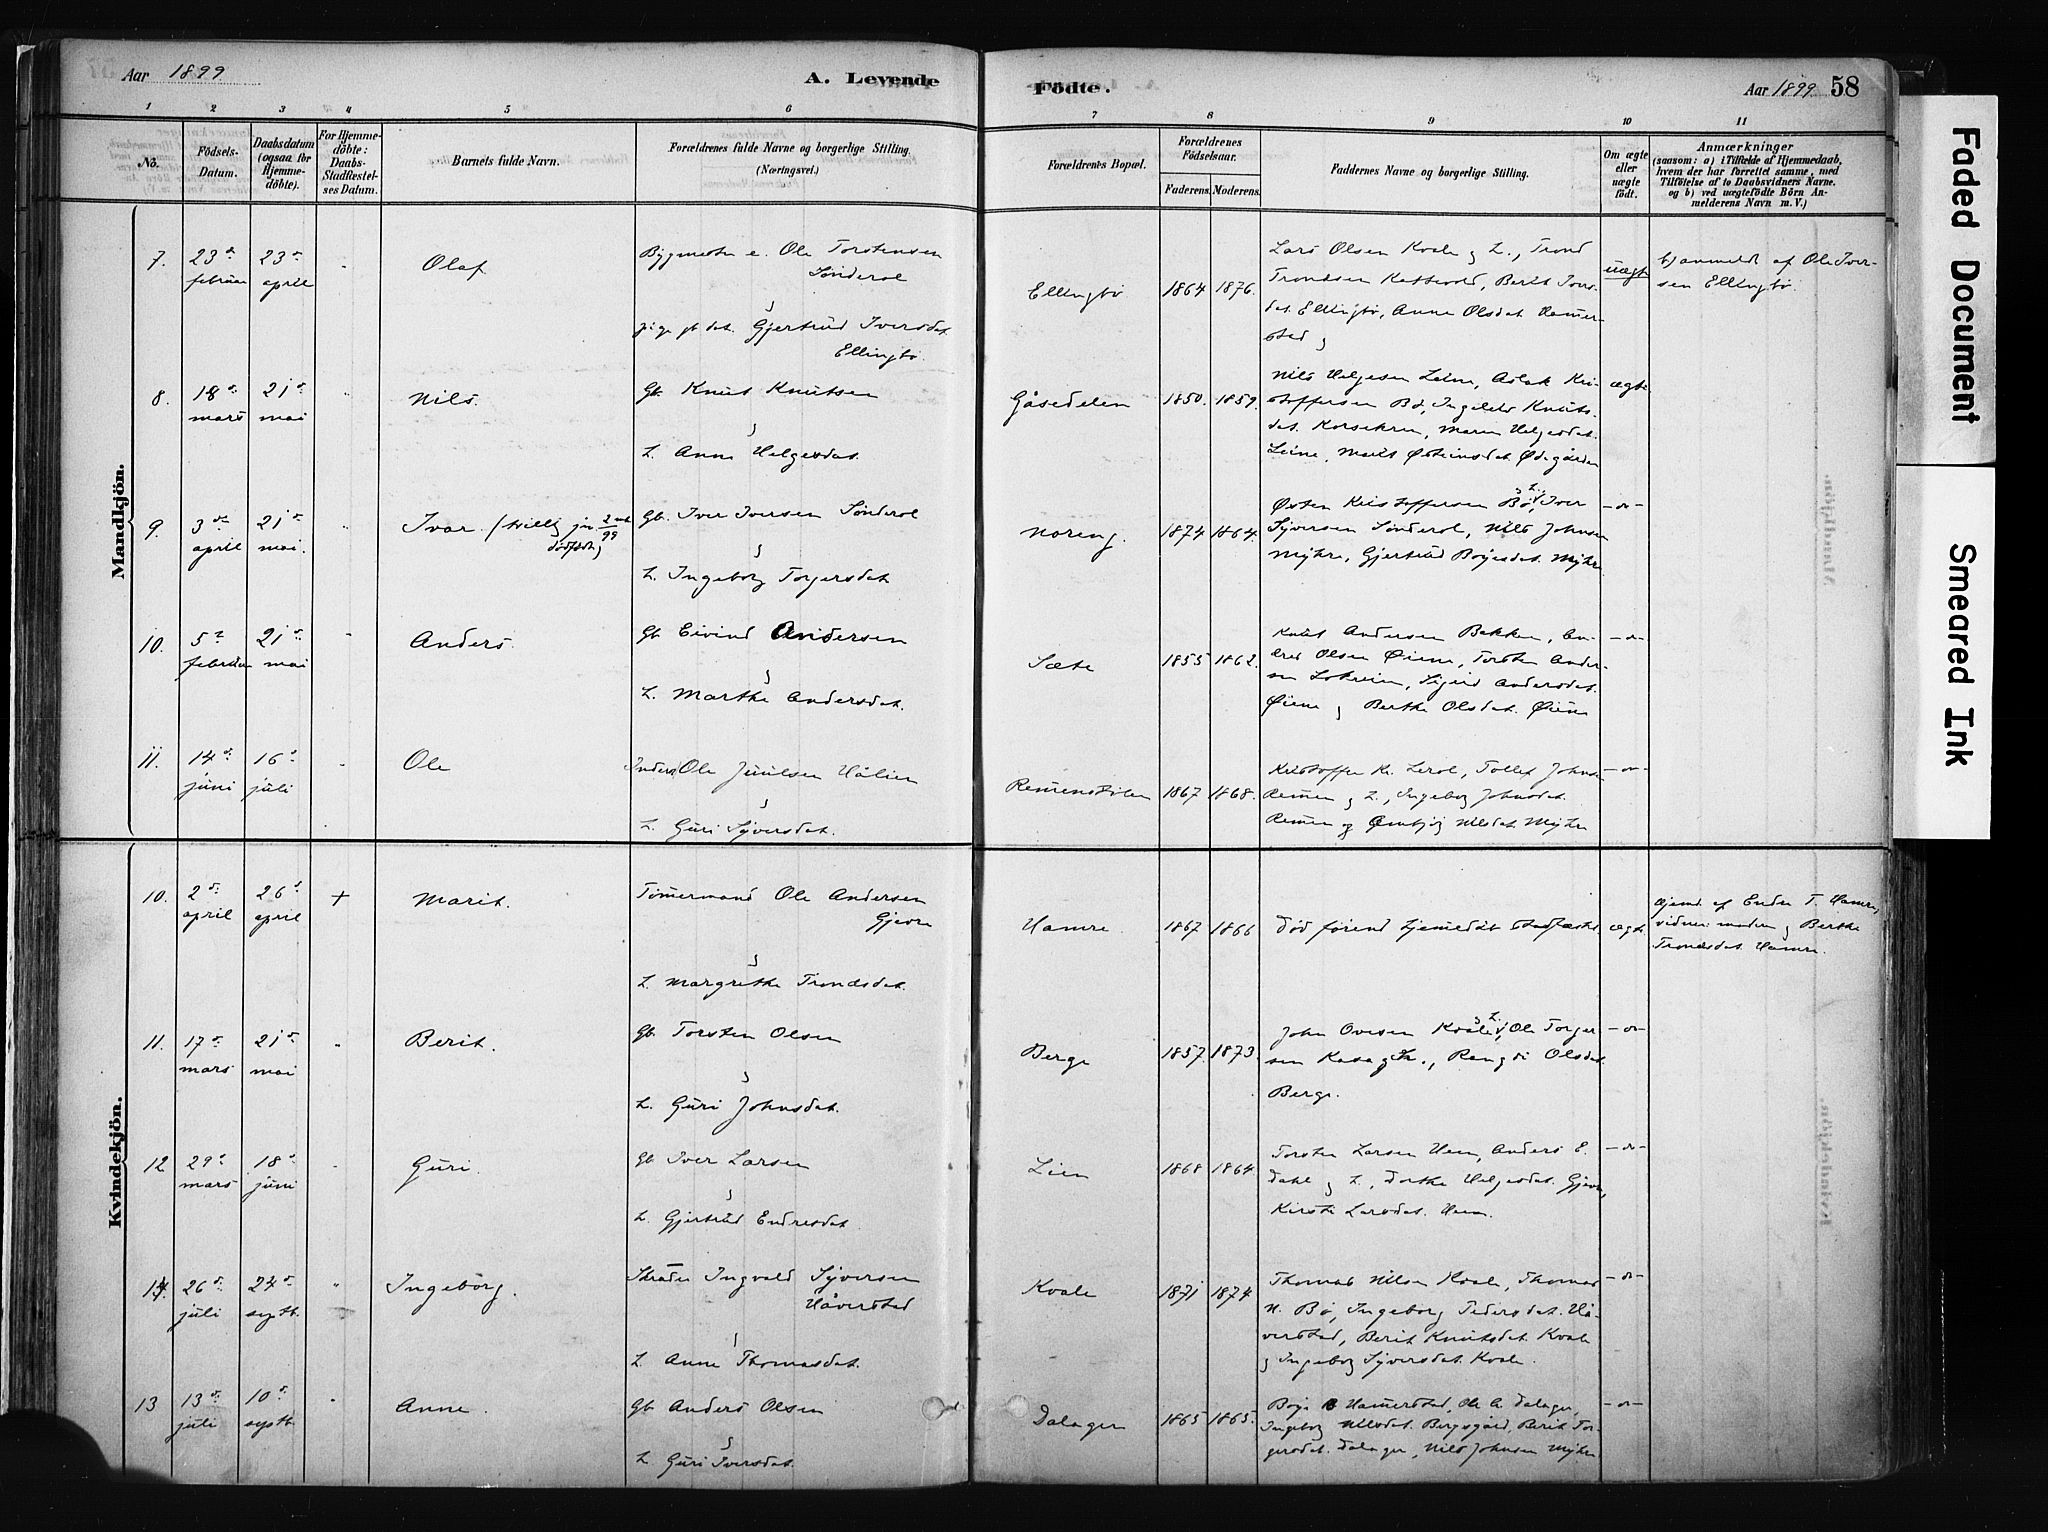 Aar 1899.
A. Levende
Födte.
Aar 1899.
58
1 2 3 4 5 6 7 8 9 10 11
No.
Födsels-
Datum.
Daabsdatum
(ogsaa for
Hjemme-
döbte).
For Hjemme-
döbte:
Daabs-
Stadfæstel-
ses Datum.
Barnets fulde Navn.
Forældrenes fulde Navne og borgerlige Stilling.
(Næringsvei.)
Forældrenes Bopæl.
Forældrenes
Födselsaar.
Faderens. Moderens.
Faddernes Navne og borgerlige Stilling.
Om ægte
eller
uægte
födt.
Anmærkninger
(saasom: a) i Tilfælde af Hjemmedaab,
hvem der har forrettet samme, med
Tilföielse af to Daabsvidners Navne,
og b) ved uægtefödte Börn An-
melderens Navn m. V.)
Mandkjön.
7. 23de februar 23de april Olaf
Bygmester e. Ole Torstensen
Sönderol
pige gbdat. Gjertrud Iversdat.
Ellingbø.
Ellingbø 1864 1876.
Lars Olsen Kvale og h., Trond
Trondsen Kattevold, Berit Ivers-
dat. Ellingbø, Anne Olsdat. Hamer-
stad
uægt
b) anmeldt af Ole Iver-
sen Ellingbø.
8. 18de mars 21de mai Nils.
Gb. Knut Knutsen
h. Anne Helgesdat.
Gåsedelen 1850. 1859.
Nils Helgesen Leine, Aslak Kri-
stoffersen Bø, Ingeleiv Knuts-
dat. Korsekren, Maren Helgesdat.
Leine, Marit Østeinsdat. Ødegården
ægte
9. 3de april 21de mai. Ivar. (tvilling
dødfødt)
Gb. Iver Iversen Sönderol
h. Ingeborg Torgersdat
Noreng. 1874 1864.
Østen Kristoffersen Bø, h. Iver
Syversen Sönderol, Nils Johnsen
Myhre, Gjertrud Boyesdat. Myhre
-o-
10. 5te februar 21de mai Anders.
Gb. Eivind Andersen
h. Marthe Andersdat.
Sæte 1855 1862.
Knut Andersen Bakken, An-
dres Olsen Øiene, Torsten Ander-
sen Lokreim, Sigrid Andersdat.
Øiene og Berthe Olsdat. Øiene
-o-
11. 14de juni 16de juli Ole
Inderst Ole Juulsen Hålien
h. Guri Syversdat.
Remenstölen 1867 1868.
Kristoffer Kr. Lerol, Tollef Johns.
Remen og h., Ingeborg Johnsdat.
Remen og Ørnbjög Nilsdat. Myhre
-o-
Kvindekjön.
10. 2de april 26de april + Marit.
Tömermand Ole Andersen
Gjevre
h. Margrethe Trondsdat.
Hamre. 1867 1866
Död förend hjemedåb stadfæstet
ægte
Hjemd. af Endre T. Hamre,
vidner: moderen og Berthe
Trondsdat. Hamre.
11. 17de mars 21de mai Berit.
Gb. Torsten Olsen
h. Guri Johnsdat.
Berge 1857. 1873.
John Ovesen Kvale, h. Ole Torger-
sen Kasa og h., Rangdi Olsdat.
Berge.
-o-
12 29de mars 18de juni Guri.
Gb. Iver Larsen
h. Gjertrud Endresdat.
Lien 1868 1864
Torsten Larsen Hem, Anders E.
dahl og h., Dorthe Helgesdat. Gjevre,
Kirsti Larsdat. Hem.
-o-
14. 26de juli 24de septb. Ingeborg.
Skræder Ingvald Syversen
Håverstad
h. Anne Thomasdat.
Kvale 1871 1874
Thomas Nilsen Kvale, Thomas
N. Bø, Ingeborg Pedersdat. Hå-
verstad, Berit Knutsdat Kvale
og Ingeborg Syversdat. Kvale.
-o-
13 13de juli 10de septb. Anne.
Gb. Anders Olsen
h. Guri Iversdat.
Dalager 1865 1865.
Boye B Hamerstad, Ole A. Dalager,
Ingeborg Nilsdat. Bergsgård, Berit Tor-
gersdat. Dalager, Nils Johnsen Myhre
-o-
Faded Document
Smeared Ink